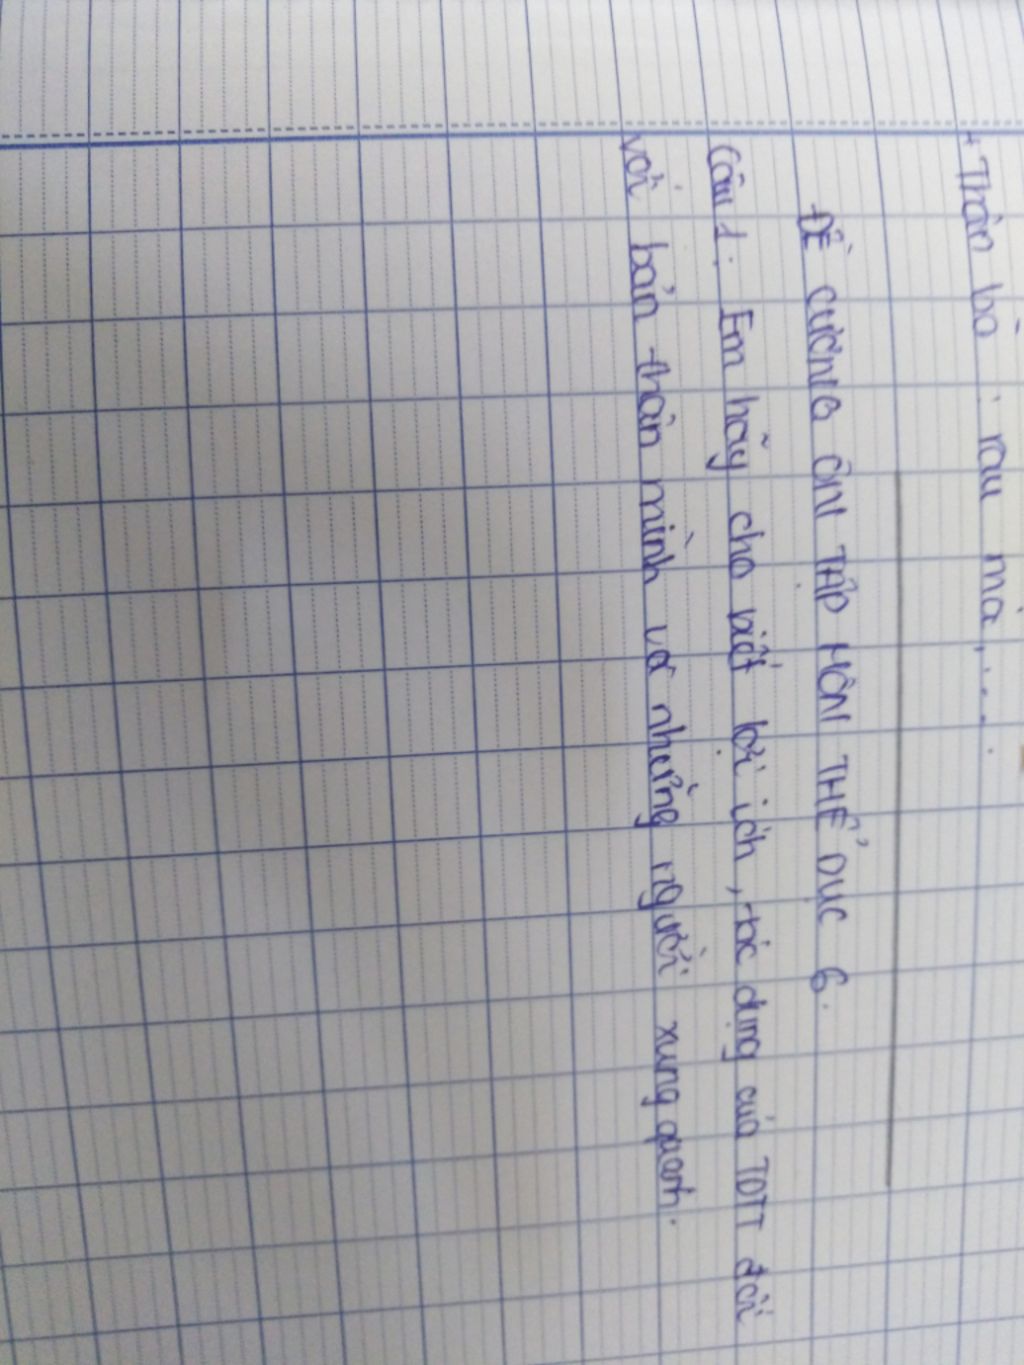 + Thân bò : rau má,....
ĐỀ CƯƠNG ÔN TẬP MÔN THỂ DỤC 6.
Câu 1: Em hãy cho biết lợi ích, tác dụng của TDTT đối
với bản thân mình và những người xung quanh.